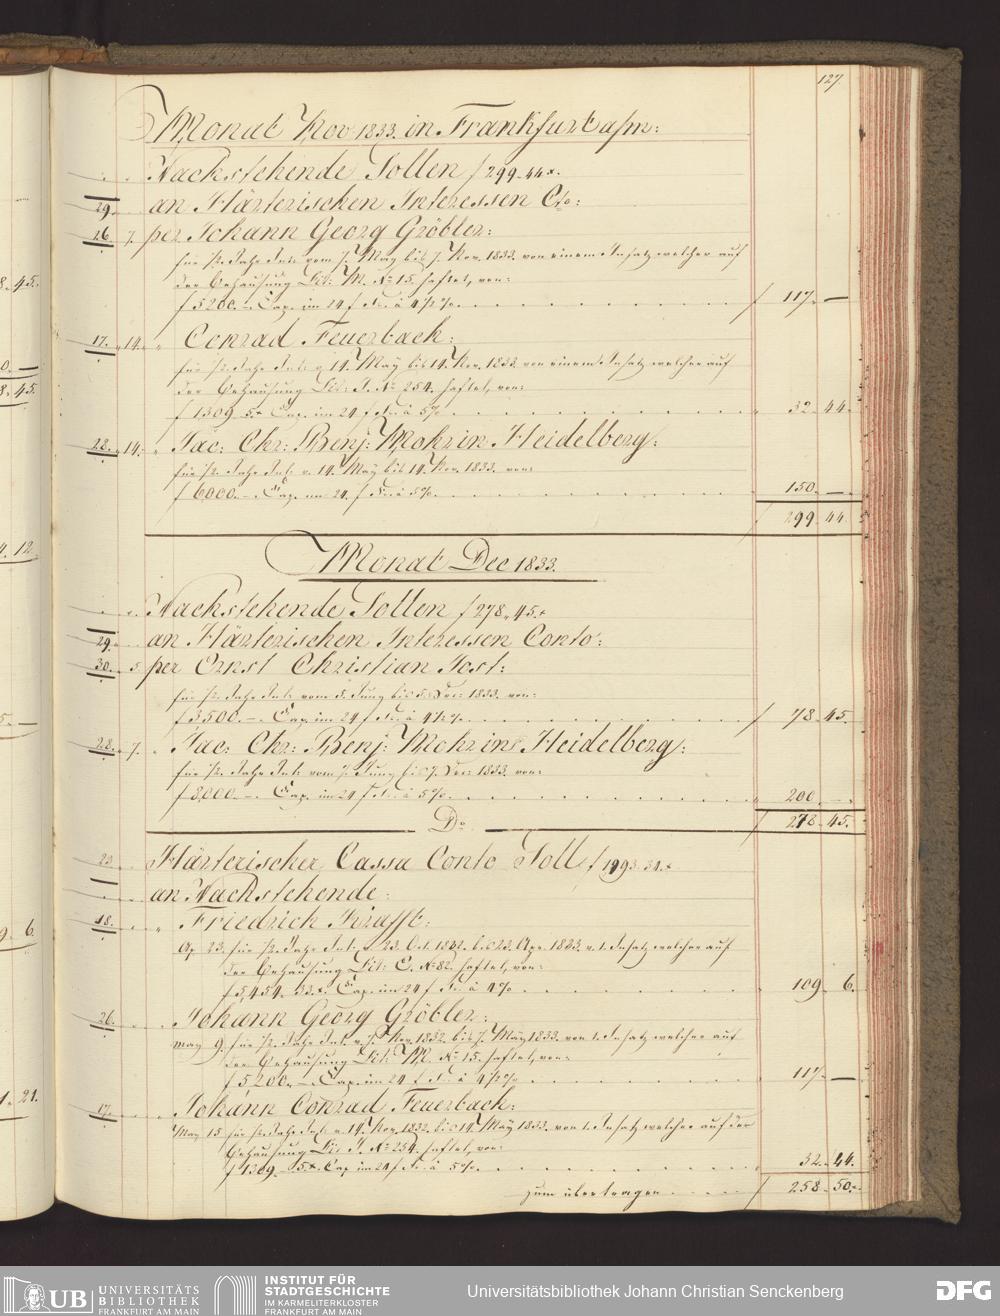 127
Monat Nov 1833. in Frankfurt a/m:
Nachstehende Sollen f 299. 44 x.
29. an Härterischen Interessen Cto:
26. 7. per Johann Georg Gröbler:
für ½ Jahr Int: vom 7. May bis 7. Nov. 1833. von einem Insatz welcher auf
der Behausung Lit: M. No 15. haftet, von:
f 5200. — Cap. im 24 f Fu: à 4½ %. f 117. —
17. 14. " Conrad Feuerbach:
für ½ Jahr Int: v. 14. May bis 14. Nov. 1833. von einem Insatz welcher auf
der Behausung Lit: J. No 254. haftet, von:
f 1309. 5 x Cap. im 24 f Fu: à 5 % " 32. 44.
28. 14. " Jac: Chr: Benj: Mohr in Heidelberg:
für ½ Jahr Int: v. 14. May bis 14. Nov. 1833. von:
f 6000. — Cap. im 24. f Fu: à 5 %. 150. —
f 299. 44.
Monat Dec 1833.
Nachstehende Sollen f 278. 45. x
29. an Härterischen Interessen Conto:
30. 5 per Ernst Christian Jost:
für ½ Jahr Int: vom 5. Juny bis 5. Dec: 1833. von:
f 3500. — Cap. im 24 f Fu: à 4½ %. f 78. 45.
28. 7. " Jac: Chr: Benj: Mohr in Heidelberg:
für ½ Jahr Int: vom 7. Juny bis 7. Dec: 1833. von:
f 8,000. — Cap. im 24 f Fu: à 5 %. " 200. —
f 278. 45.
Do
23. Härterischer Cassa Conto Soll f 1993. 34. x
an Nachstehende:
18. " Friedrich Krafft:
Ap 23. für ½ Jahr Int: v. 23. Oct. 1832. bis 23. Apr 1833. v. 1. Insatz welcher auf
der Behausung Lit: C. No 82. haftet, von:
f 5,454. 33. x. Cap. im 24 f Fu: à 4 % " 109. 6.
26. " Johann Georg Gröbler:
May 9. für ½ Jahr Int. v. 7. Nov. 1832. bis 7. May 1833. von 1. Insatz welcher auf
der Behausung Lit: M. No 15. haftet, von:
f 5200. — Cap. im 24 f Fu: à 4½ % " 117. —
17. " Johann Conrad Feuerbach:
May 15 für ½ Jahr Int: v. 14. Nov. 1832. bis 14. May 1833. von 1. Insatz welcher auf der
Behausung Lit. J. No 254. haftet, von:
f 1309. 5 x. Cap im 24 f Fu: à 5 %. 32. 44.
zum übertragen f 258. 50.
UB UNIVERSITÄTS
BIBLIOTHEK
FRANKFURT AM MAIN
INSTITUT FÜR
STADTGESCHICHTE
IM KARMELITERKLOSTER
FRANKFURT AM MAIN
Universitätsbibliothek Johann Christian Senckenberg
DFG